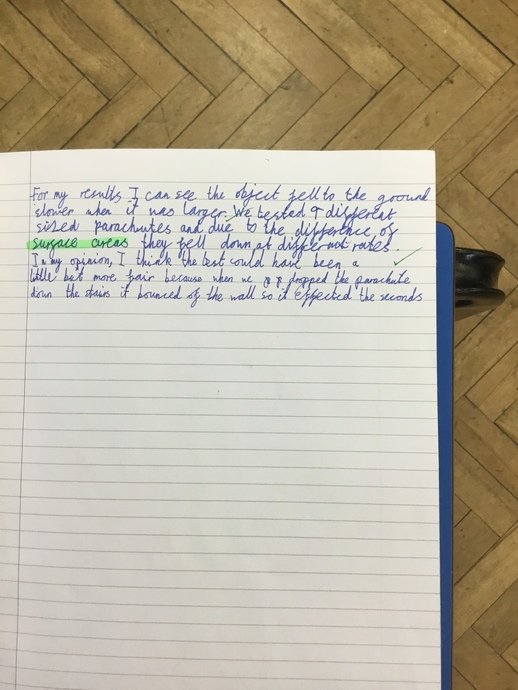 For my results I can see the object fell to the ground
slower when it was larger. We tested different
sized parachutes and due to the difference of
surface areas they fell down at different rates.
In my opinion, I think the test could have been a
little bit more fair because when we dropped the parachute
down the stairs it bounced of the wall so it effected the seconds